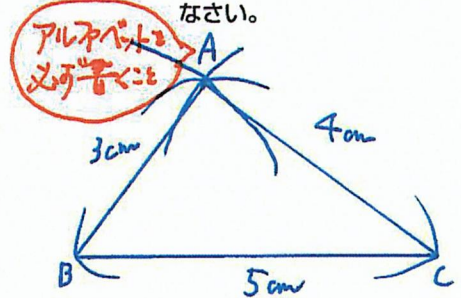 なさい。
アルファベットを
必ず書くこと
A
3cm
4cm
B
5cm
C